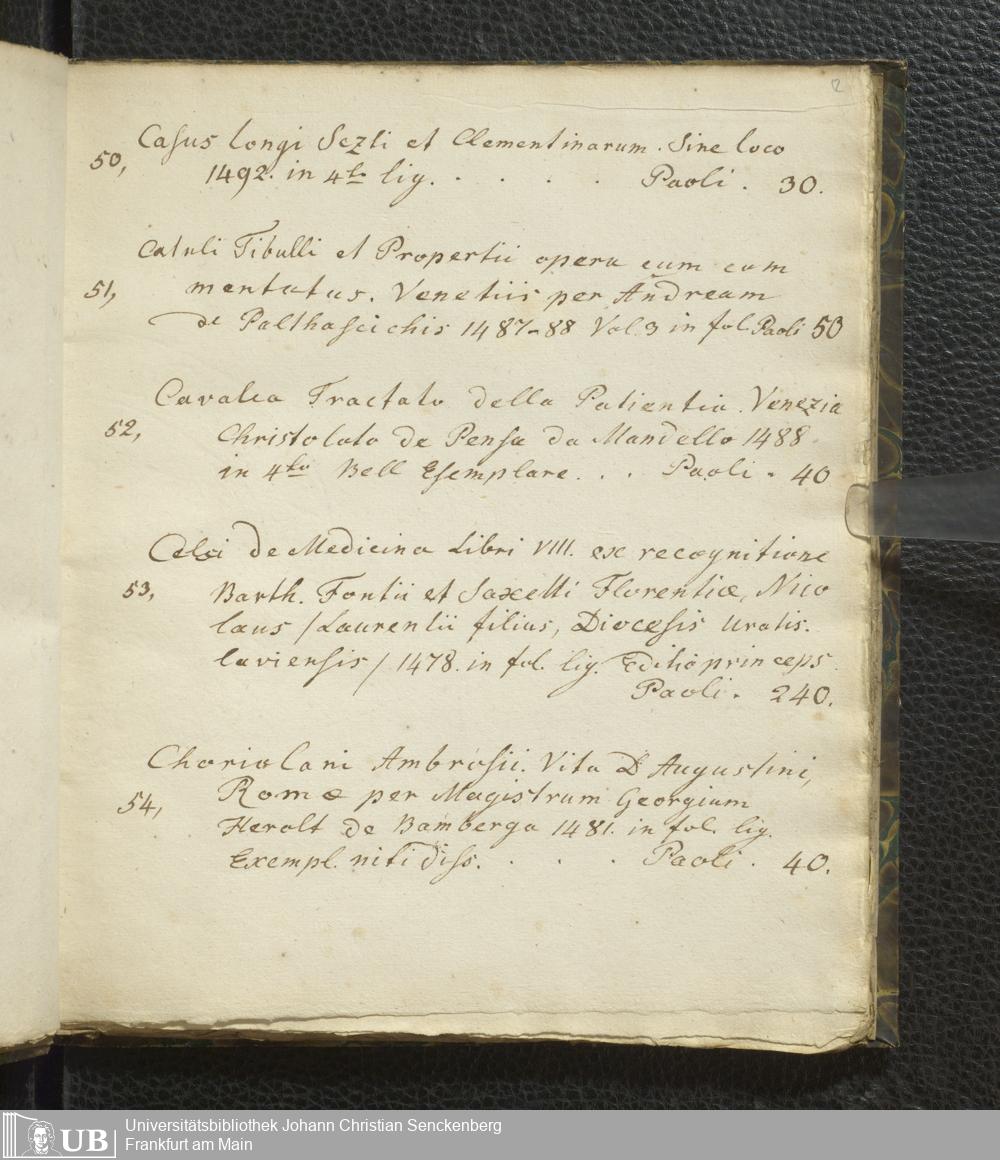 Casus longi Sexti et Clementinarum. Sine loco
50, 1492. in 4to lig. . . . . Paoli . 30.
Catuli Tibulli et Propertii opera cum com
51, mentatus. Venetiis per Andream
de Palthascichis 1487-88 Vol. 3 in fol Paoli 50
Cavalca Tractato della Patientia. Venezia
52, Christolato de Pensa da Mandello 1488
in 4to Bell Esemplare. . . Paoli . 40
Celsi de Medicina Libri VIII. ex recognitione
53, Barth. Fontii et Saxetti Florentiæ, Nico
laus /Laurentii filius, Diocesis Uratis.
laviensis/ 1478. in fol. lig. Editio princeps
Paoli . 240.
Choriolani Ambrosii. Vita D Augustini,
54, Romæ per Magistrum Georgium
Heralt de Bamberga 1481. in fol. lig.
Exempl. nitidiss. . . . Paoli . 40.
UB
Universitätsbibliothek Johann Christian Senckenberg
Frankfurt am Main